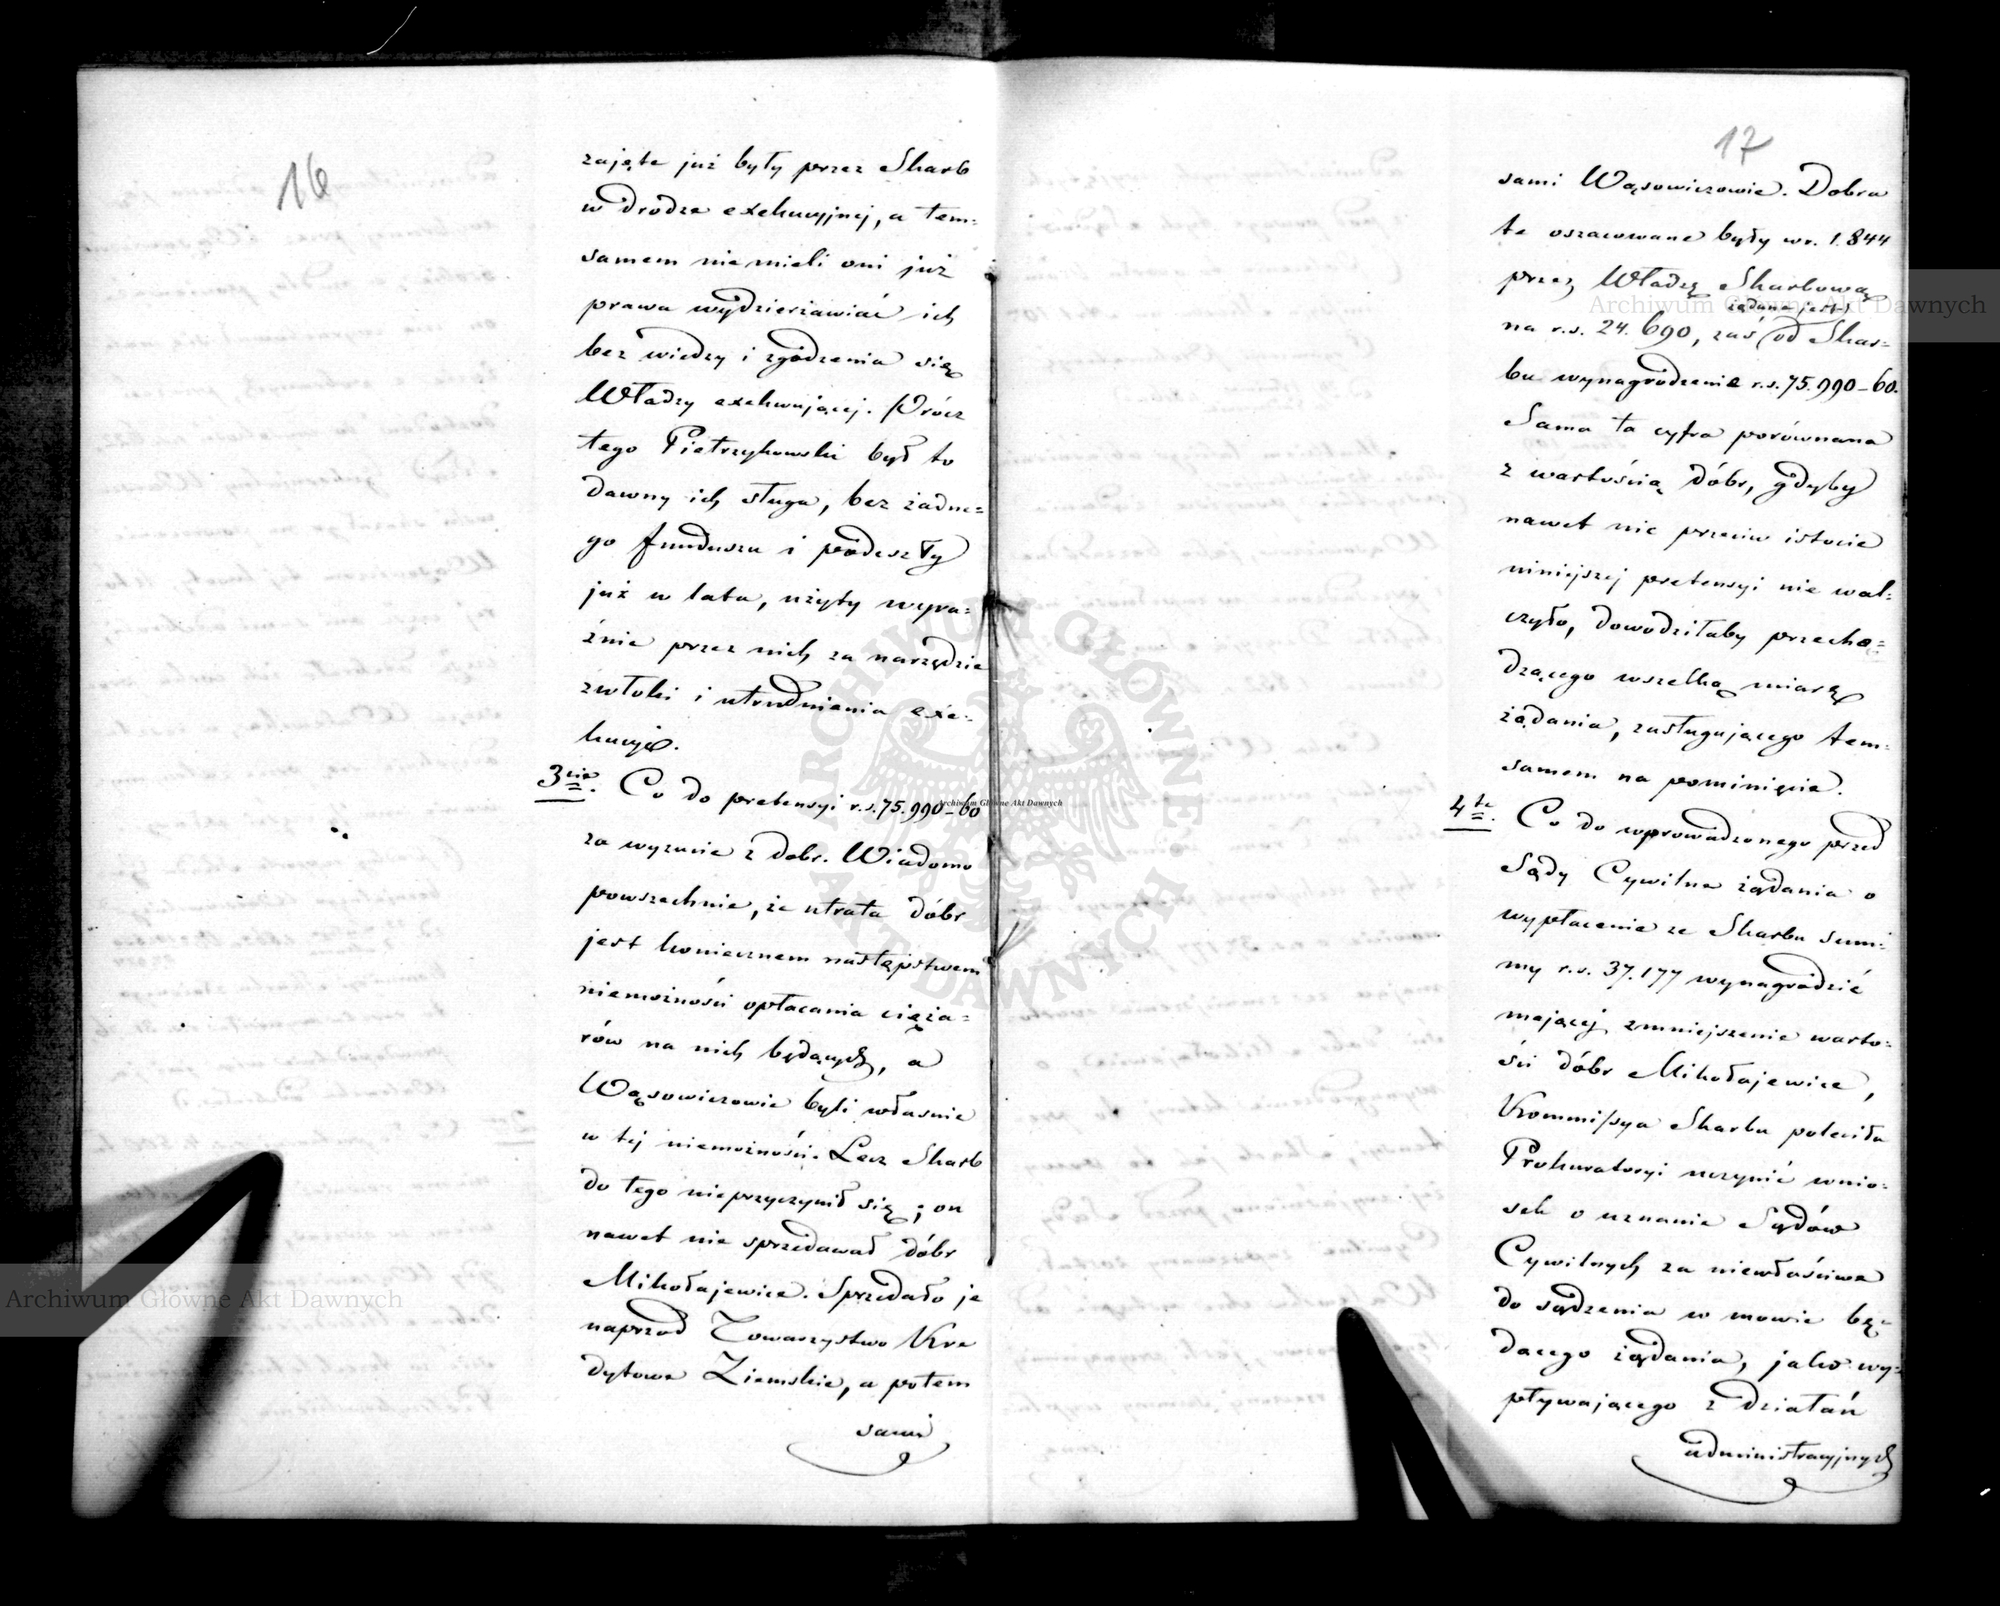 16
zajęte już były przez Skarb
w drodze exekucyjnej, a tem-
samem nie mieli oni już
prawa wydzierżawiać ich
bez wiedzy i zgodzenia się
Władzy exekwującej. Prócz
tego Pietrzykowski był to
dawny ich sługa, bez żadne-
go funduszu i podeszły
już w lata, użyty wyra-
źnie przez nich za narzędzie
zwłoki i utrudnienia exe-
kucyi.
3cie. Co do pretensyi r.s. 75.990-60
za wyzucie z dobr. Wiadomo
powszechnie, że utrata dóbr
jest koniecznem następstwem
niemożności opłacania cięża-
rów na nich będących, a
Wąsowiczowie byli własnie
w tej niemożności. Lecz Skarb
do tego nieprzyczynił się; on
nawet nie sprzedawał dóbr
Mikołajewice. Sprzedało je
naprzód Towarzystwo Kre
dytowe Ziemskie, a potem
sami
17
sami Wąsowiczowie. Dobra
te oszacowane były w r. 1.844
przez Władzę Skarbową
żądane jest
na r.s. 24.690, zaś od Skar-
bu wynagrodzenie r.s. 75.990-60.
Sama ta cyfra porównana
z wartością dóbr, gdyby
nawet nic przeciw istocie
niniejszej pretensyi nie wal-
czyło, dowodziłaby przecho-
dzącego wszelką miarę
żądania, zasługującego tem-
samem na pominięcie.
4te. Co do wprowadzonego przed
Sądy Cywilne żądania o
wypłacenie ze Skarbu sum-
my r.s. 37.177 wynagrodzić
mającej zmniejszenie warto-
ści dóbr Mikołajewice,
Kommissya Skarbu poleciła
Prokuratoryi uczynić wnio-
sek o uznanie Sądów
Cywilnych za niewłaściwe
do sądzenia w mowie bę-
dącego żądania, jako wy-
pływającego z działań
administracyjnych
Archiwum Główne Akt Dawnych
Archiwum Główne Akt Dawnych
Archiwum Główne Akt Dawnych
ARCHIWUM GŁÓWNE AKT DAWNYCH